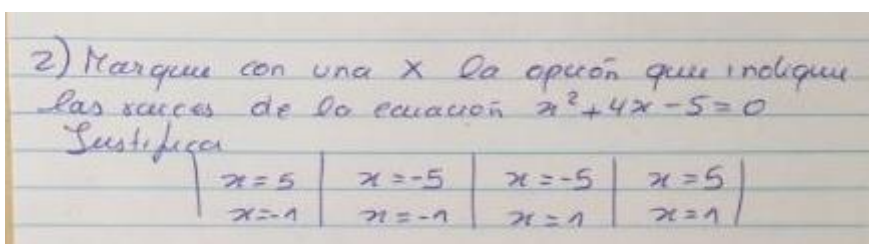 2) Marque con una X la opción que indique
las raices de la ecuación x²+4x-5=0
Justifica
x=5 | x=-5 | x=-5 | x=5
x=-1 | x=-1 | x=1 | x=1